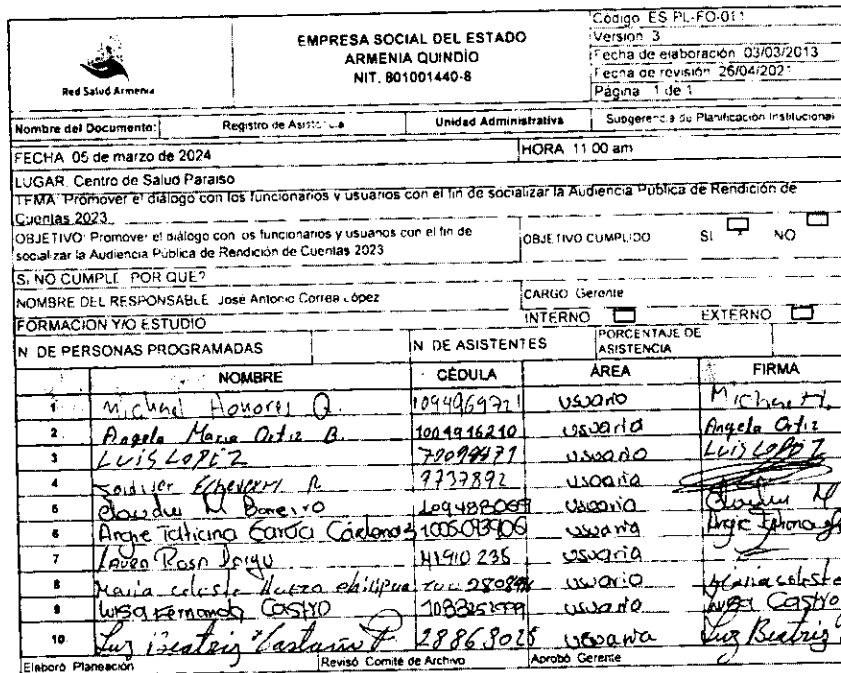 Red Salud Armenia
EMPRESA SOCIAL DEL ESTADO
ARMENIA QUINDÍO
NIT. 801001440-8
Código ES PL-FO-011
Version 3
Fecha de elaboración 03/03/2013
Fecha de revisión 26/04/2021
Página 1 de 1
Nombre del Documento: Registro de Asistencia Unidad Administrativa Subgerencia de Planificación Institucional
FECHA 05 de marzo de 2024 HORA 11 00 am
LUGAR Centro de Salud Paraiso
TEMA Promover el diálogo con los funcionarios y usuarios con el fin de socializar la Audiencia Pública de Rendición de
Cuentas 2023
OBJETIVO Promover el diálogo con los funcionarios y usuarios con el fin de
socializar la Audiencia Pública de Rendición de Cuentas 2023
OBJETIVO CUMPLIDO SI NO
SI NO CUMPLE POR QUE?
NOMBRE DEL RESPONSABLE José Antonio Correa López CARGO Gerente
FORMACION Y/O ESTUDIO INTERNO EXTERNO
N DE PERSONAS PROGRAMADAS N DE ASISTENTES PORCENTAJE DE
ASISTENCIA
NOMBRE CÉDULA ÁREA FIRMA
1 Michael Honores Q. 1094969721 usuario Michael H.
2 Angela Maria Ortiz B. 1004916210 usuaria Angela Ortiz
3 LUIS LOPEZ usuario LUIS LOPEZ
4 Echeverri R 9737892 usuaria
5 Claudia M usuaria Claudia M
6 Angie Tatiana Garcia usuaria Angie
7 41910235 usuaria
8 Maria celeste usuario Maria celeste
9 Luisa Fernanda Castro usuario Luisa Castro
10 Luz Beatriz Castaño P. 28868025 usuaria Luz Beatriz
Elaboró Planeación Revisó Comité de Archivo Aprobó Gerente